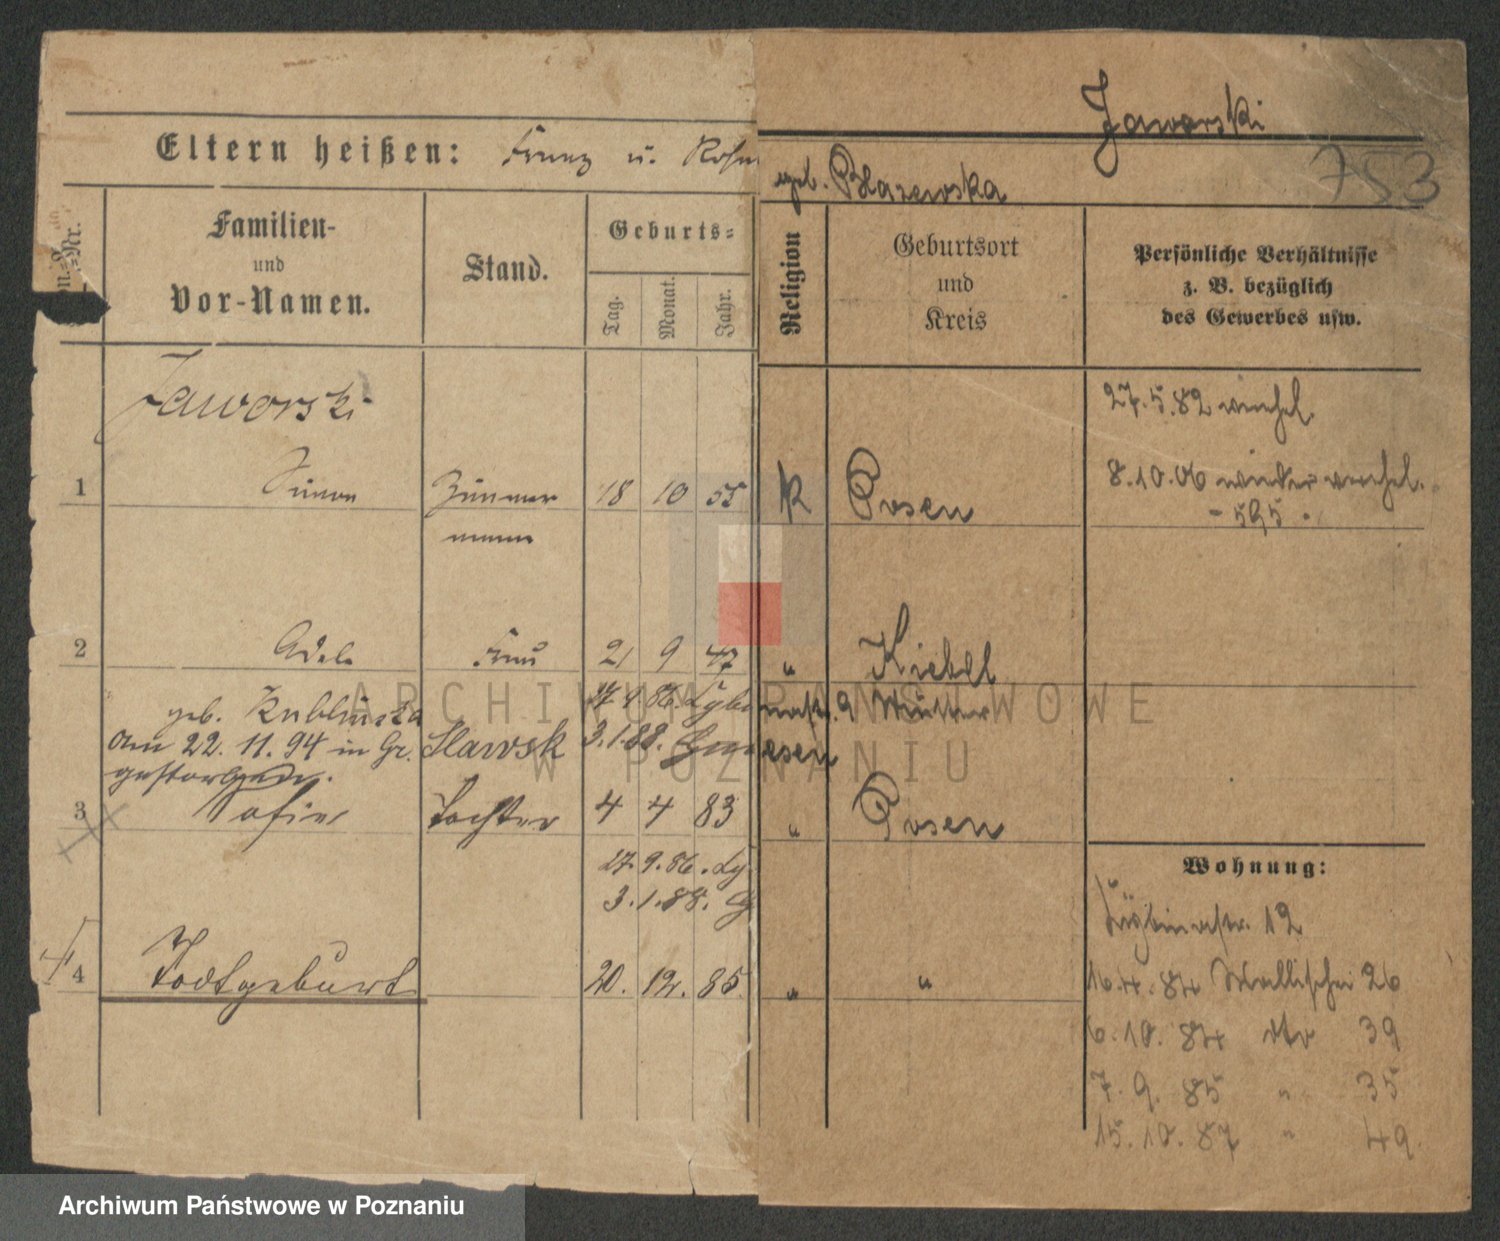 Jaworski
753
Eltern heißen: Franz u. Rosa
geb. Blazewska
Nr.
Familien-
und
Vor-Namen.
Stand.
Geburts-
Tag.
Monat.
Jahr.
Religion
Geburtsort
und
Kreis
Persönliche Verhältnisse
z. B. bezüglich
des Gewerbes usw.
Jaworski
27.5.82
1 Simon Zimmer 18 10 55 K Posen
mann
8.10.06 wieder
- 595 -
2 Adele Frau 21 9 47 " Kiebel
geb. 86. Mutter
am 22. 11. 94 in Gr. Slawsk 3.1.88. Gnesen
gestorben.
3 Sofie Tochter 4 4 83 " Posen
27.9.86.
3.1.88. G
4 Todtgeburt 20. 12. 85 " "
Wohnung:
12
16.4.84 Wallischei 26
6.10.84 dto 39
7.9.85 " 35
15.10.87 " 49.
ARCHIWUM PAŃSTWOWE
W POZNANIU
Archiwum Państwowe w Poznaniu